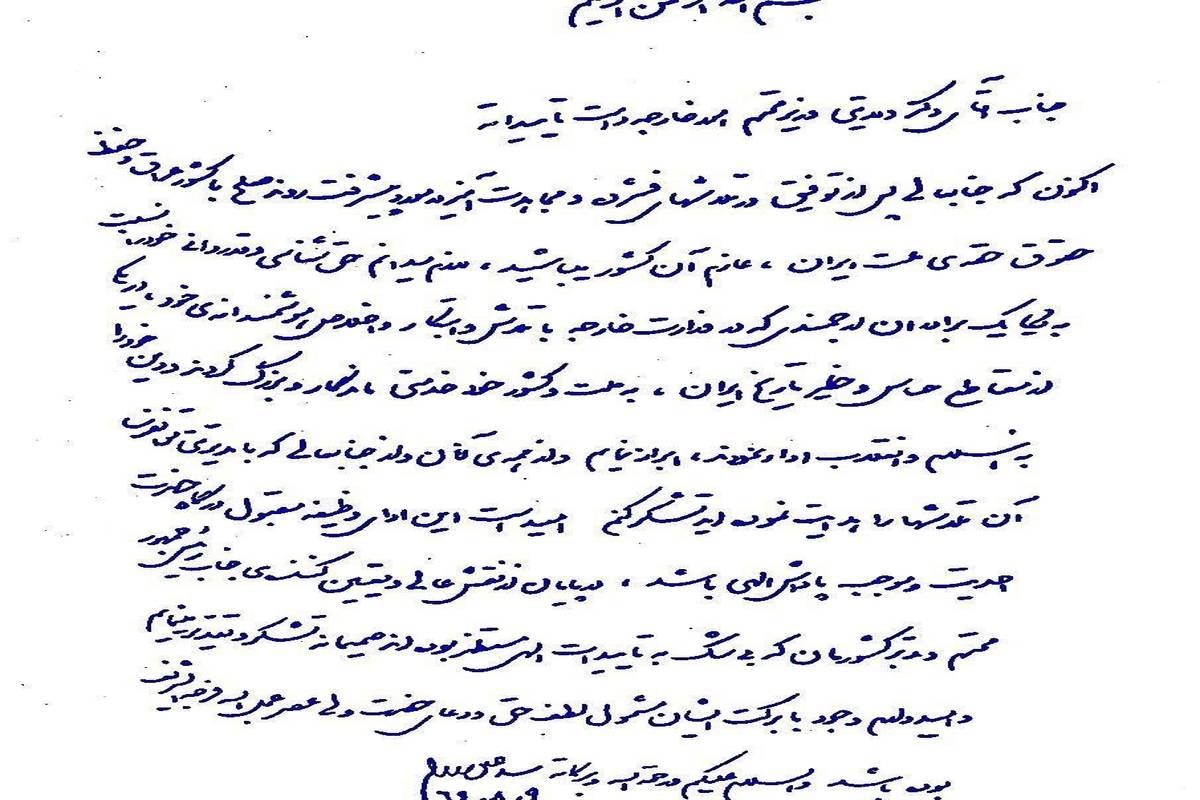 بسم الله الرحمن الرحیم
جناب آقای دکتر ولایتی وزیر محترم امور خارجه دامت تاییداته
اکنون که جنابعالی پس از توفیق در تلاشهای فشرده و مجاهدت آمیز در مورد پیشرفت روند صلح با کشور عراق و حفظ
حقوق حقه‌ی ملت ایران ، عازم آن کشور میباشید ، لازم میدانم حق‌شناسی و قدردانی خود نسبت
به یکایک برادران ارجمندی که در وزارت خارجه با تلاش و ابتکار و اخلاص هوشمندانه‌ی خود
از مقاطع حساس و خطیر تاریخ ایران ، به ملت و کشور خود خدمتی ماندگار و بزرگ کردند و دین خود را
به اسلام و انقلاب ادا نمودند، ابراز نمایم و از همه‌ی آنان و از جنابعالی که با مدیریت
آن تلاشها را هدایت نموده اید تشکر کنم امید است این ادای وظیفه مقبول درگاه حضرت
احدیت و موجب پاداش الهی باشد ، در پایان از نقش عالی و تعیین کننده‌ی جناب رئیس جمهور
محترم و مدبر کشورمان که بی شک به تاییدات الهی مستظهر بوده اند صمیمانه تشکر و تقدیر مینمایم
و امیدوارم وجود با برکت ایشان مشمول لطف حق و دعای حضرت ولی عصر عجل الله فرجه الشریف
بوده باشد والسلام علیکم و رحمة الله و برکاته سید علی